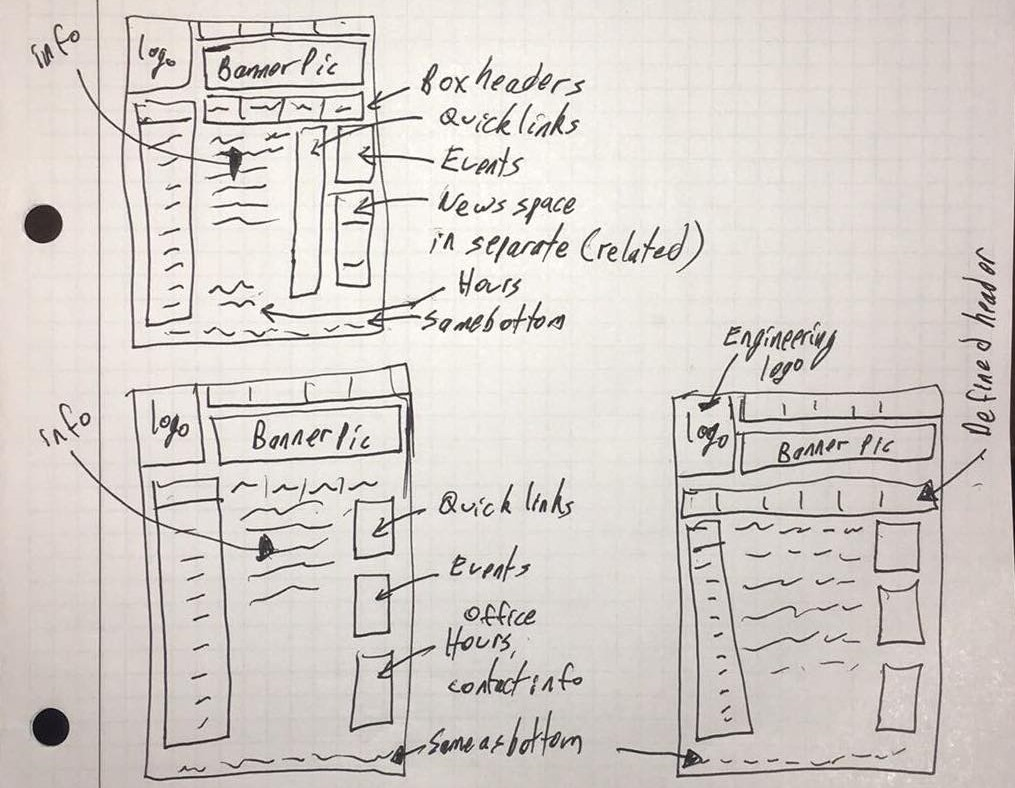 info
logo
Banner Pic
Box headers
Quick links
Events
News space
in separate (related)
Hours
Same bottom
info
logo
Banner Pic
Quick links
Events
office
Hours,
contact info
Same as bottom
Engineering
logo
logo
Banner Pic
Defined header